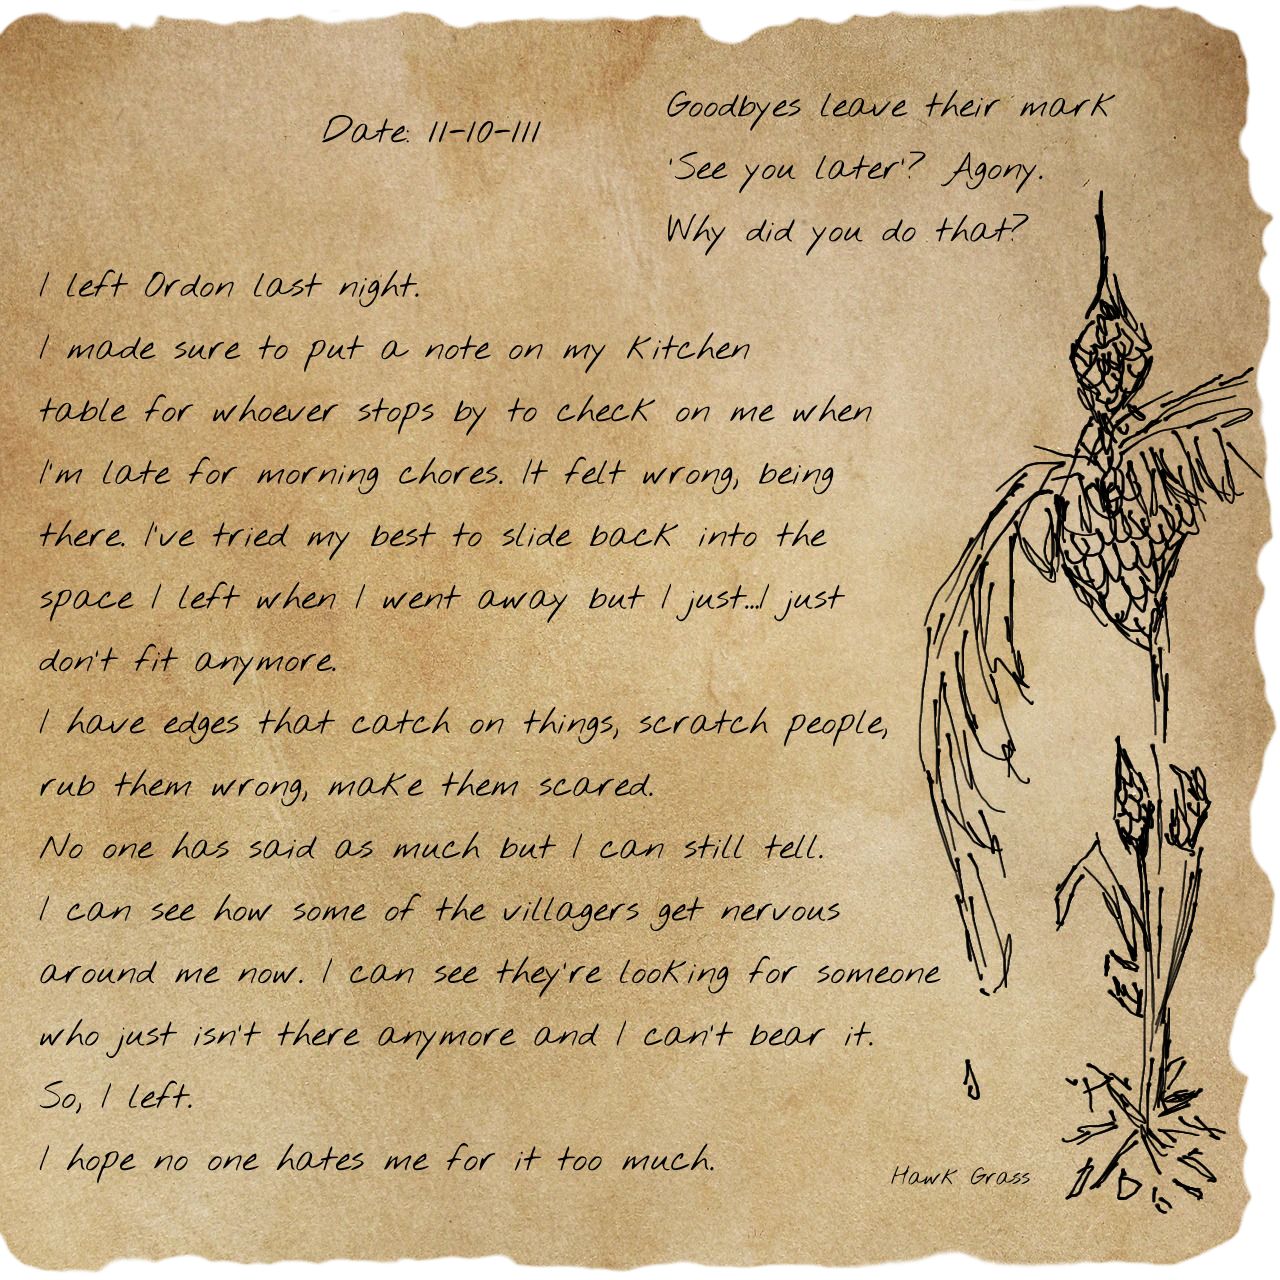 Date: 11-10-111
Goodbyes leave their mark
'See you later'? Agony.
Why did you do that?
I left Ordon last night.
I made sure to put a note on my kitchen
table for whoever stops by to check on me when
I'm late for morning chores. It felt wrong, being
there. I've tried my best to slide back into the
space I left when I went away but I just...I just
don't fit anymore.
I have edges that catch on things, scratch people,
rub them wrong, make them scared.
No one has said as much but I can still tell.
I can see how some of the villagers get nervous
around me now. I can see they're looking for someone
who just isn't there anymore and I can't bear it.
So, I left.
I hope no one hates me for it too much.
Hawk Grass